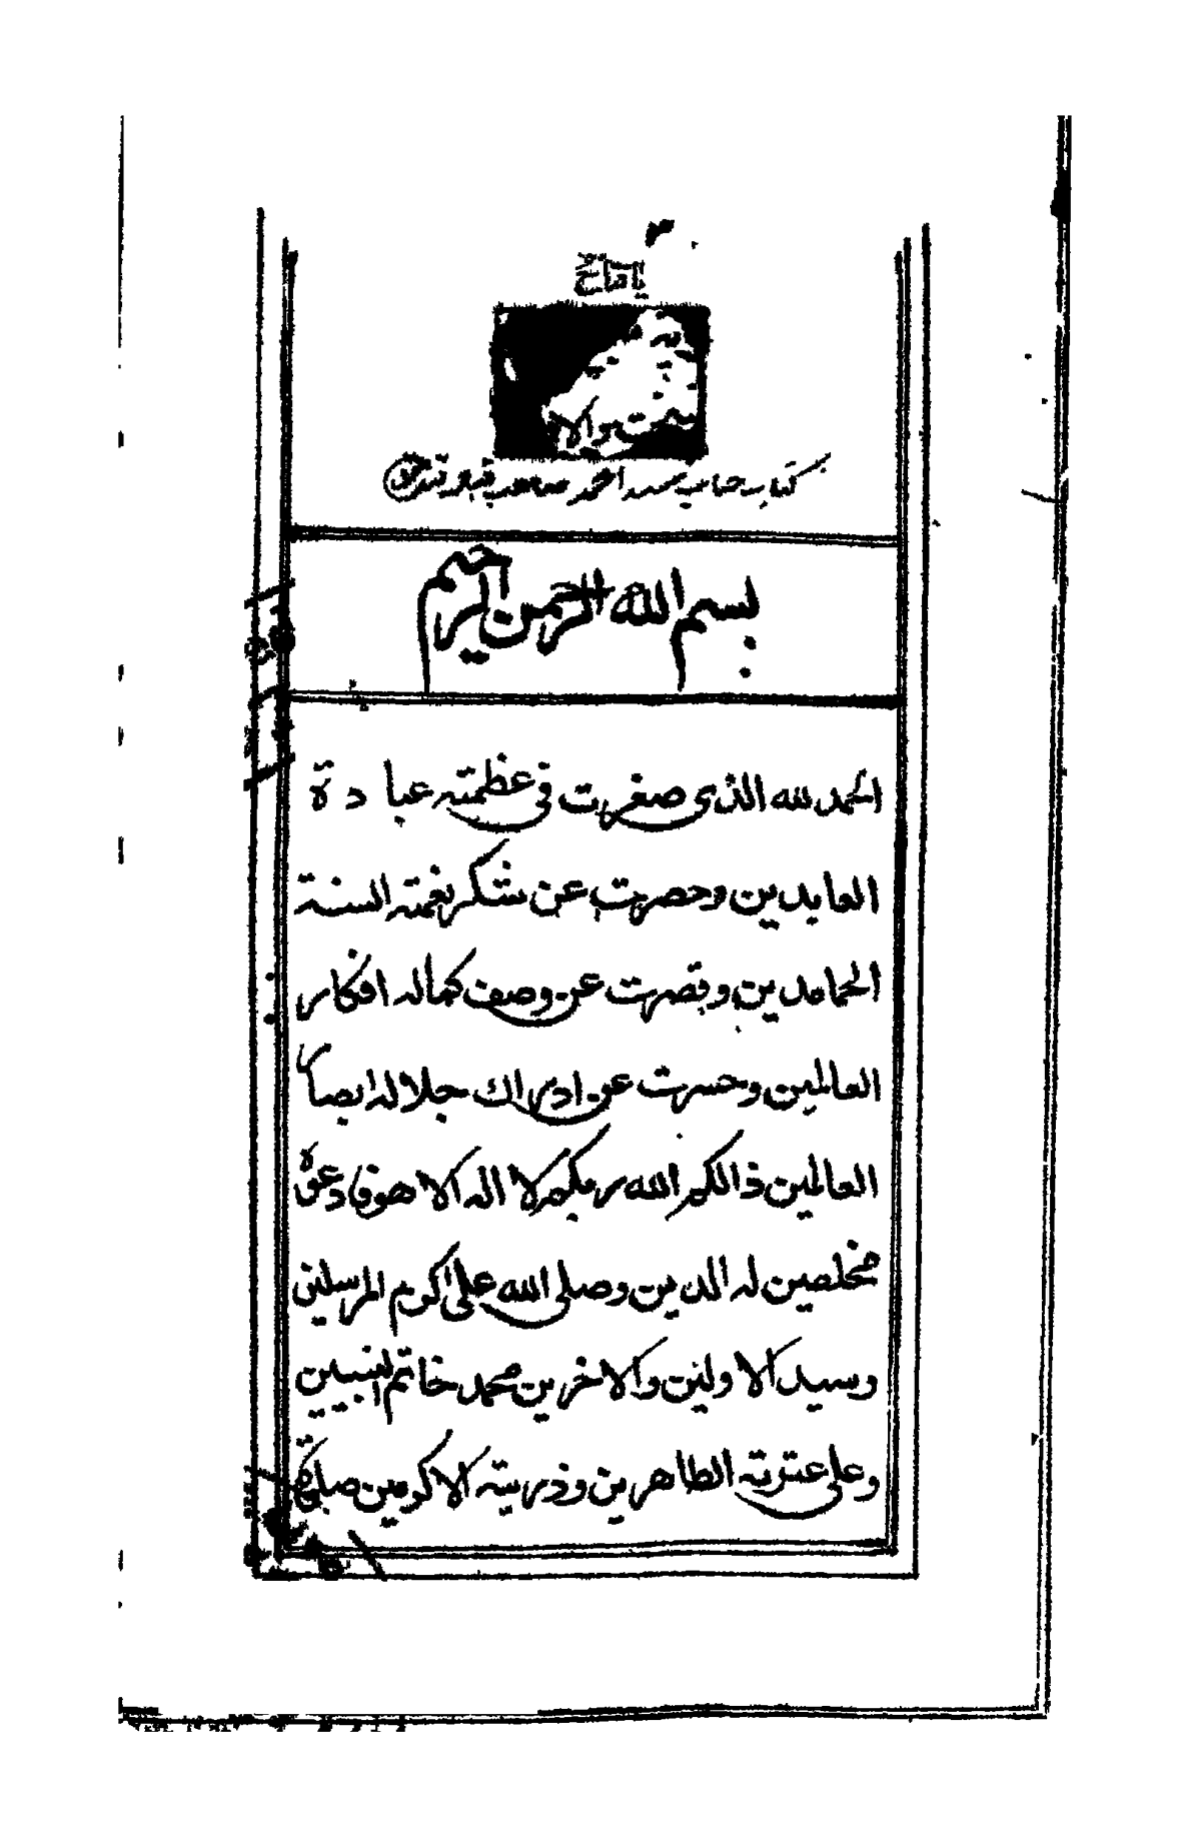 يا فتاح
كتاب جناب سيد احمد صاحب
بسم الله الرحمن الرحيم
الحمد لله الذى صغرت فى عظمته عبا دة
العابدين وحصرت عن شكر نعمته السنة
الحامدين وقصرت عن وصف كماله افكار
العالمين وحسرت عن ادراك جلاله ابصار
العالمين ذالكم الله ربكم لا اله الا هو فادعوه
مخلصين له الدين وصلى الله على اكرم المرسلين
وسيد الاولين والاخرين محمد خاتم النبيين
وعلى عترته الطاهرين وذريته الاكرمين صلوة